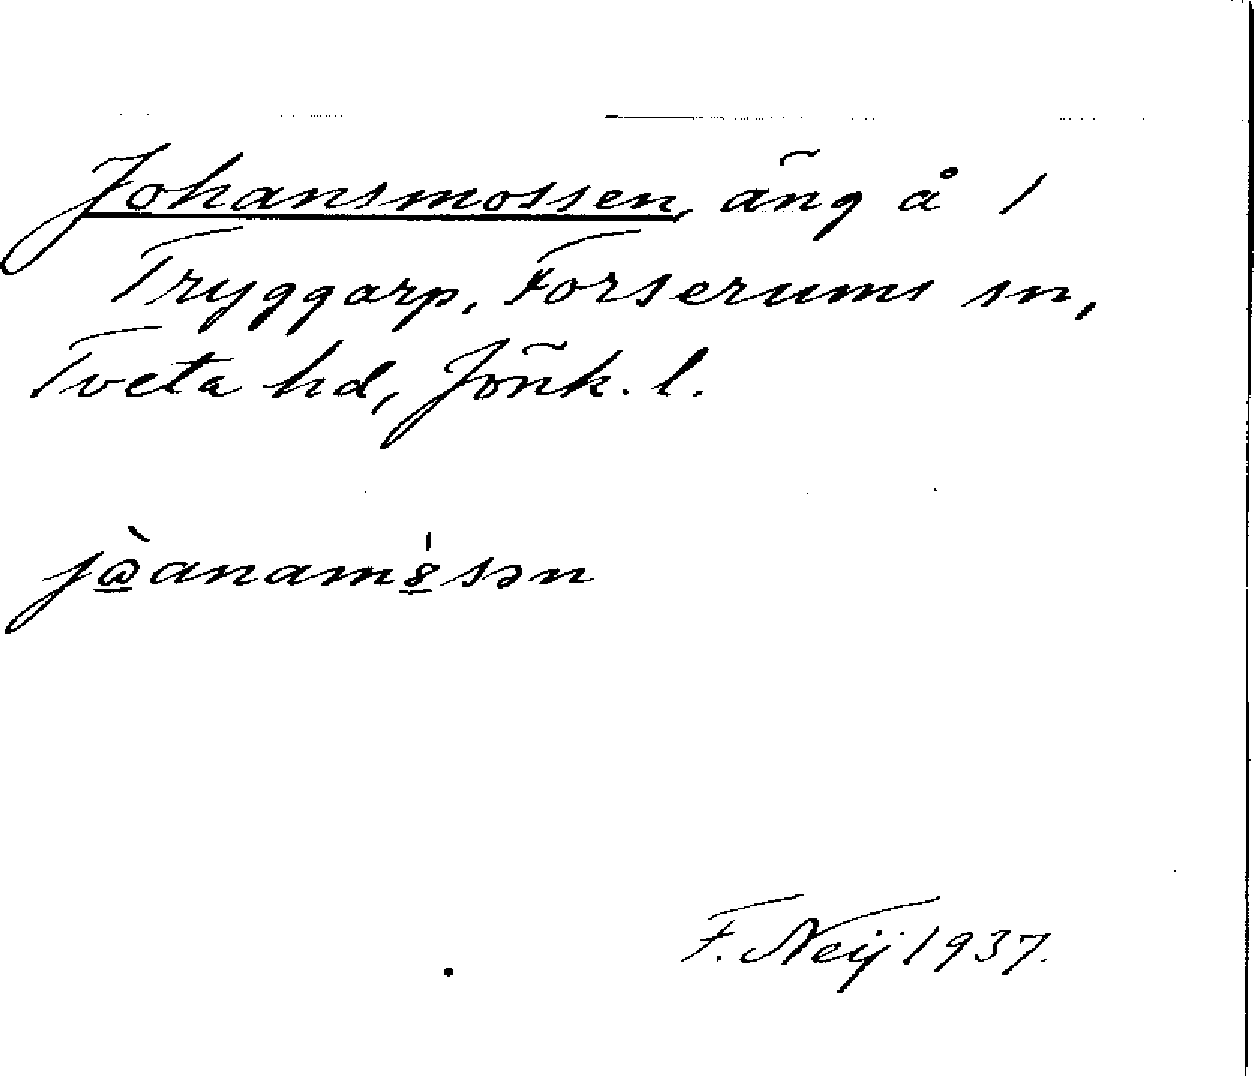 Johansmossen, äng å 1
Tryggarp, Forserums sn,
Tveta hd, Jönk. l.
F. Neij 1937.